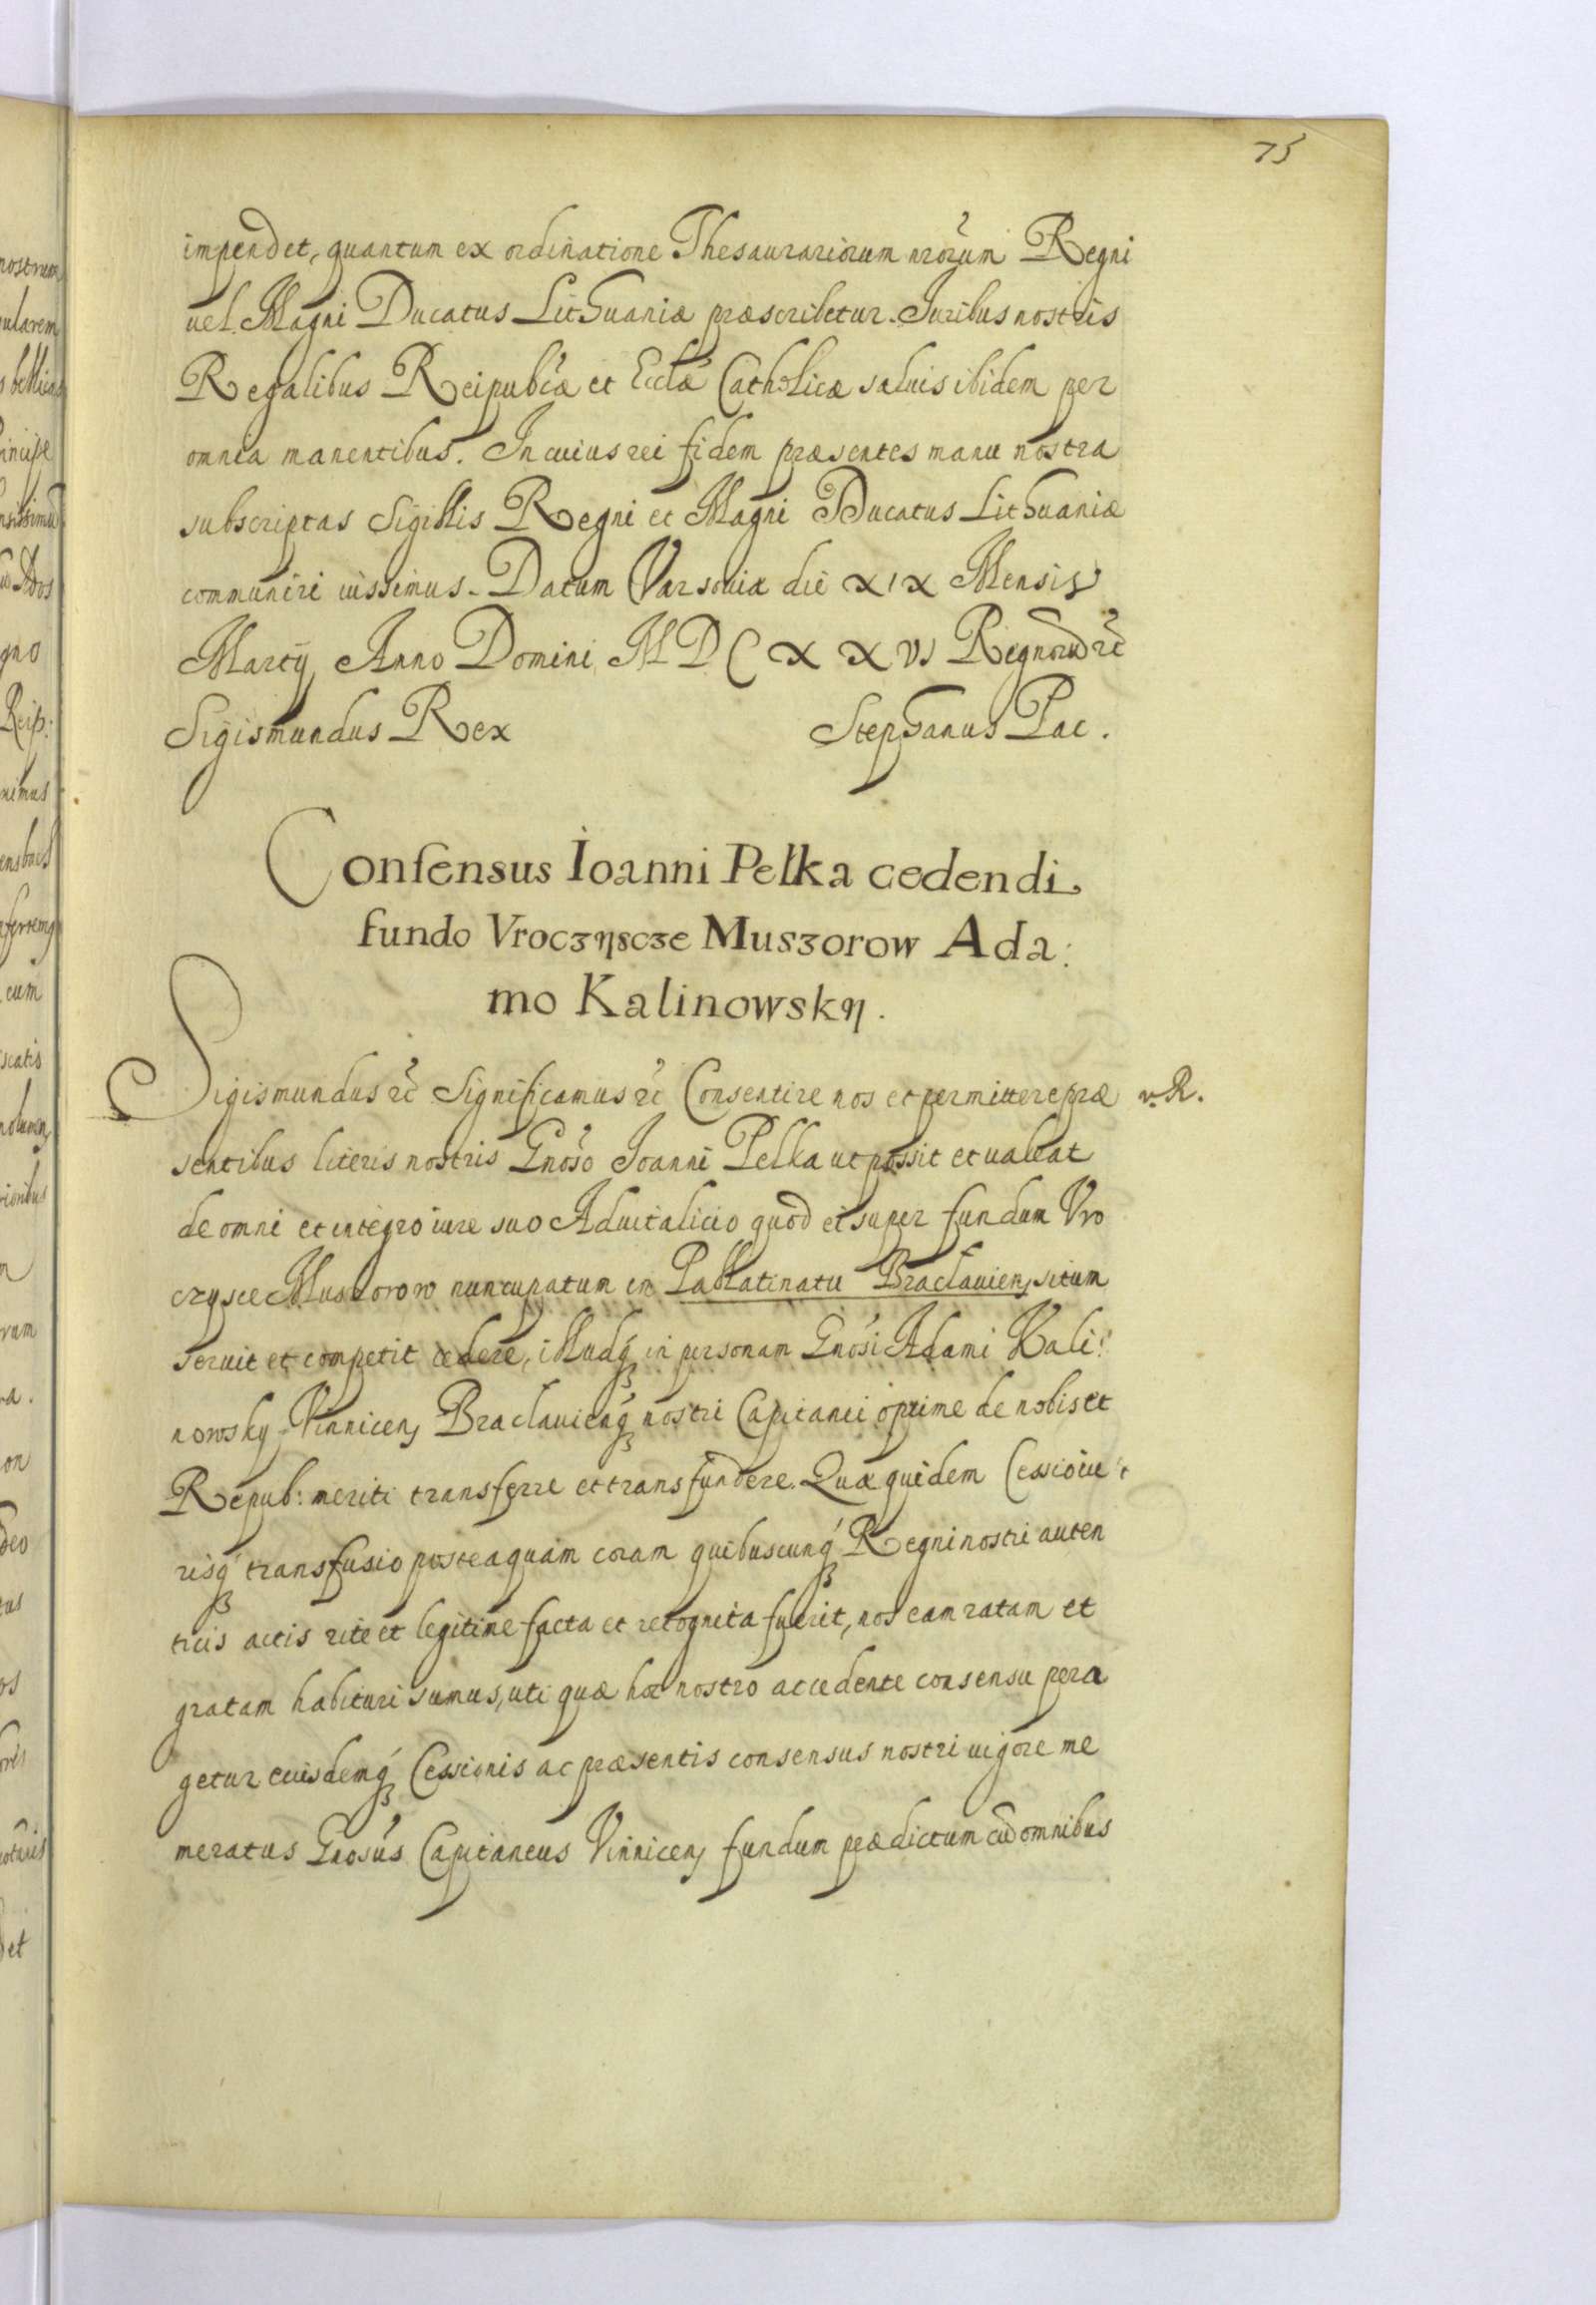 75
impendet, quantum ex ordinatione Thesaurariorum nrorum Regni
uel Magni Ducatus Lithuaniæ præscribetur. Iuribus nostris
Regalibus Reipublcæ et Ecclæ Catholicæ saluis ibidem per
omnia manentibus. In cuius rei fidem præsentes manu nostra
subscriptas Sigillis Regni et Magni Ducatus Lithuaniæ
communiri iussimus. Datum Varsouiæ die XIX Mensis
Martij Anno Domini MDCXXVI
Sigismundus Rex Stephanus Pac.
Consensus Ioanni Pełka cedendi
fundo Vroczyscze Muszorow Ada:
mo Kalinowsky.
Sigismundus etc Significamus etc Consentire nos et permittere præ
sentibus literis nostris Gnoso Ioanni Pełka ut possit et ualeat
de omni et integro iure suo Aduitalicio quod ei super fundum Vro
czysce Muszorow nuncupatum in Pallatinatu Bracłauien, situm
seruit et competit cedere, illudq in personam Gnosi Adami Kali:
nowsky Vinnicen, Bracłauienq nostri Capitanei optime de nobis et
Repub: meriti transferre et transfundere. Quæ quidem Cessio iu
risq transfusio posteaquam coram quibuscunq Regni nostri auten
ticis actis rite et legitime facta et recognita fuerit, nos eam ratam et
gratam habituri sumus, uti quæ hoc nostro accedente consensu pera
getur euisdemq Cessionis ac præsentis consensus nostri uigore me
meratus Gnosus Capitaneus Vinnicen, fundum prædictum cum omnibus